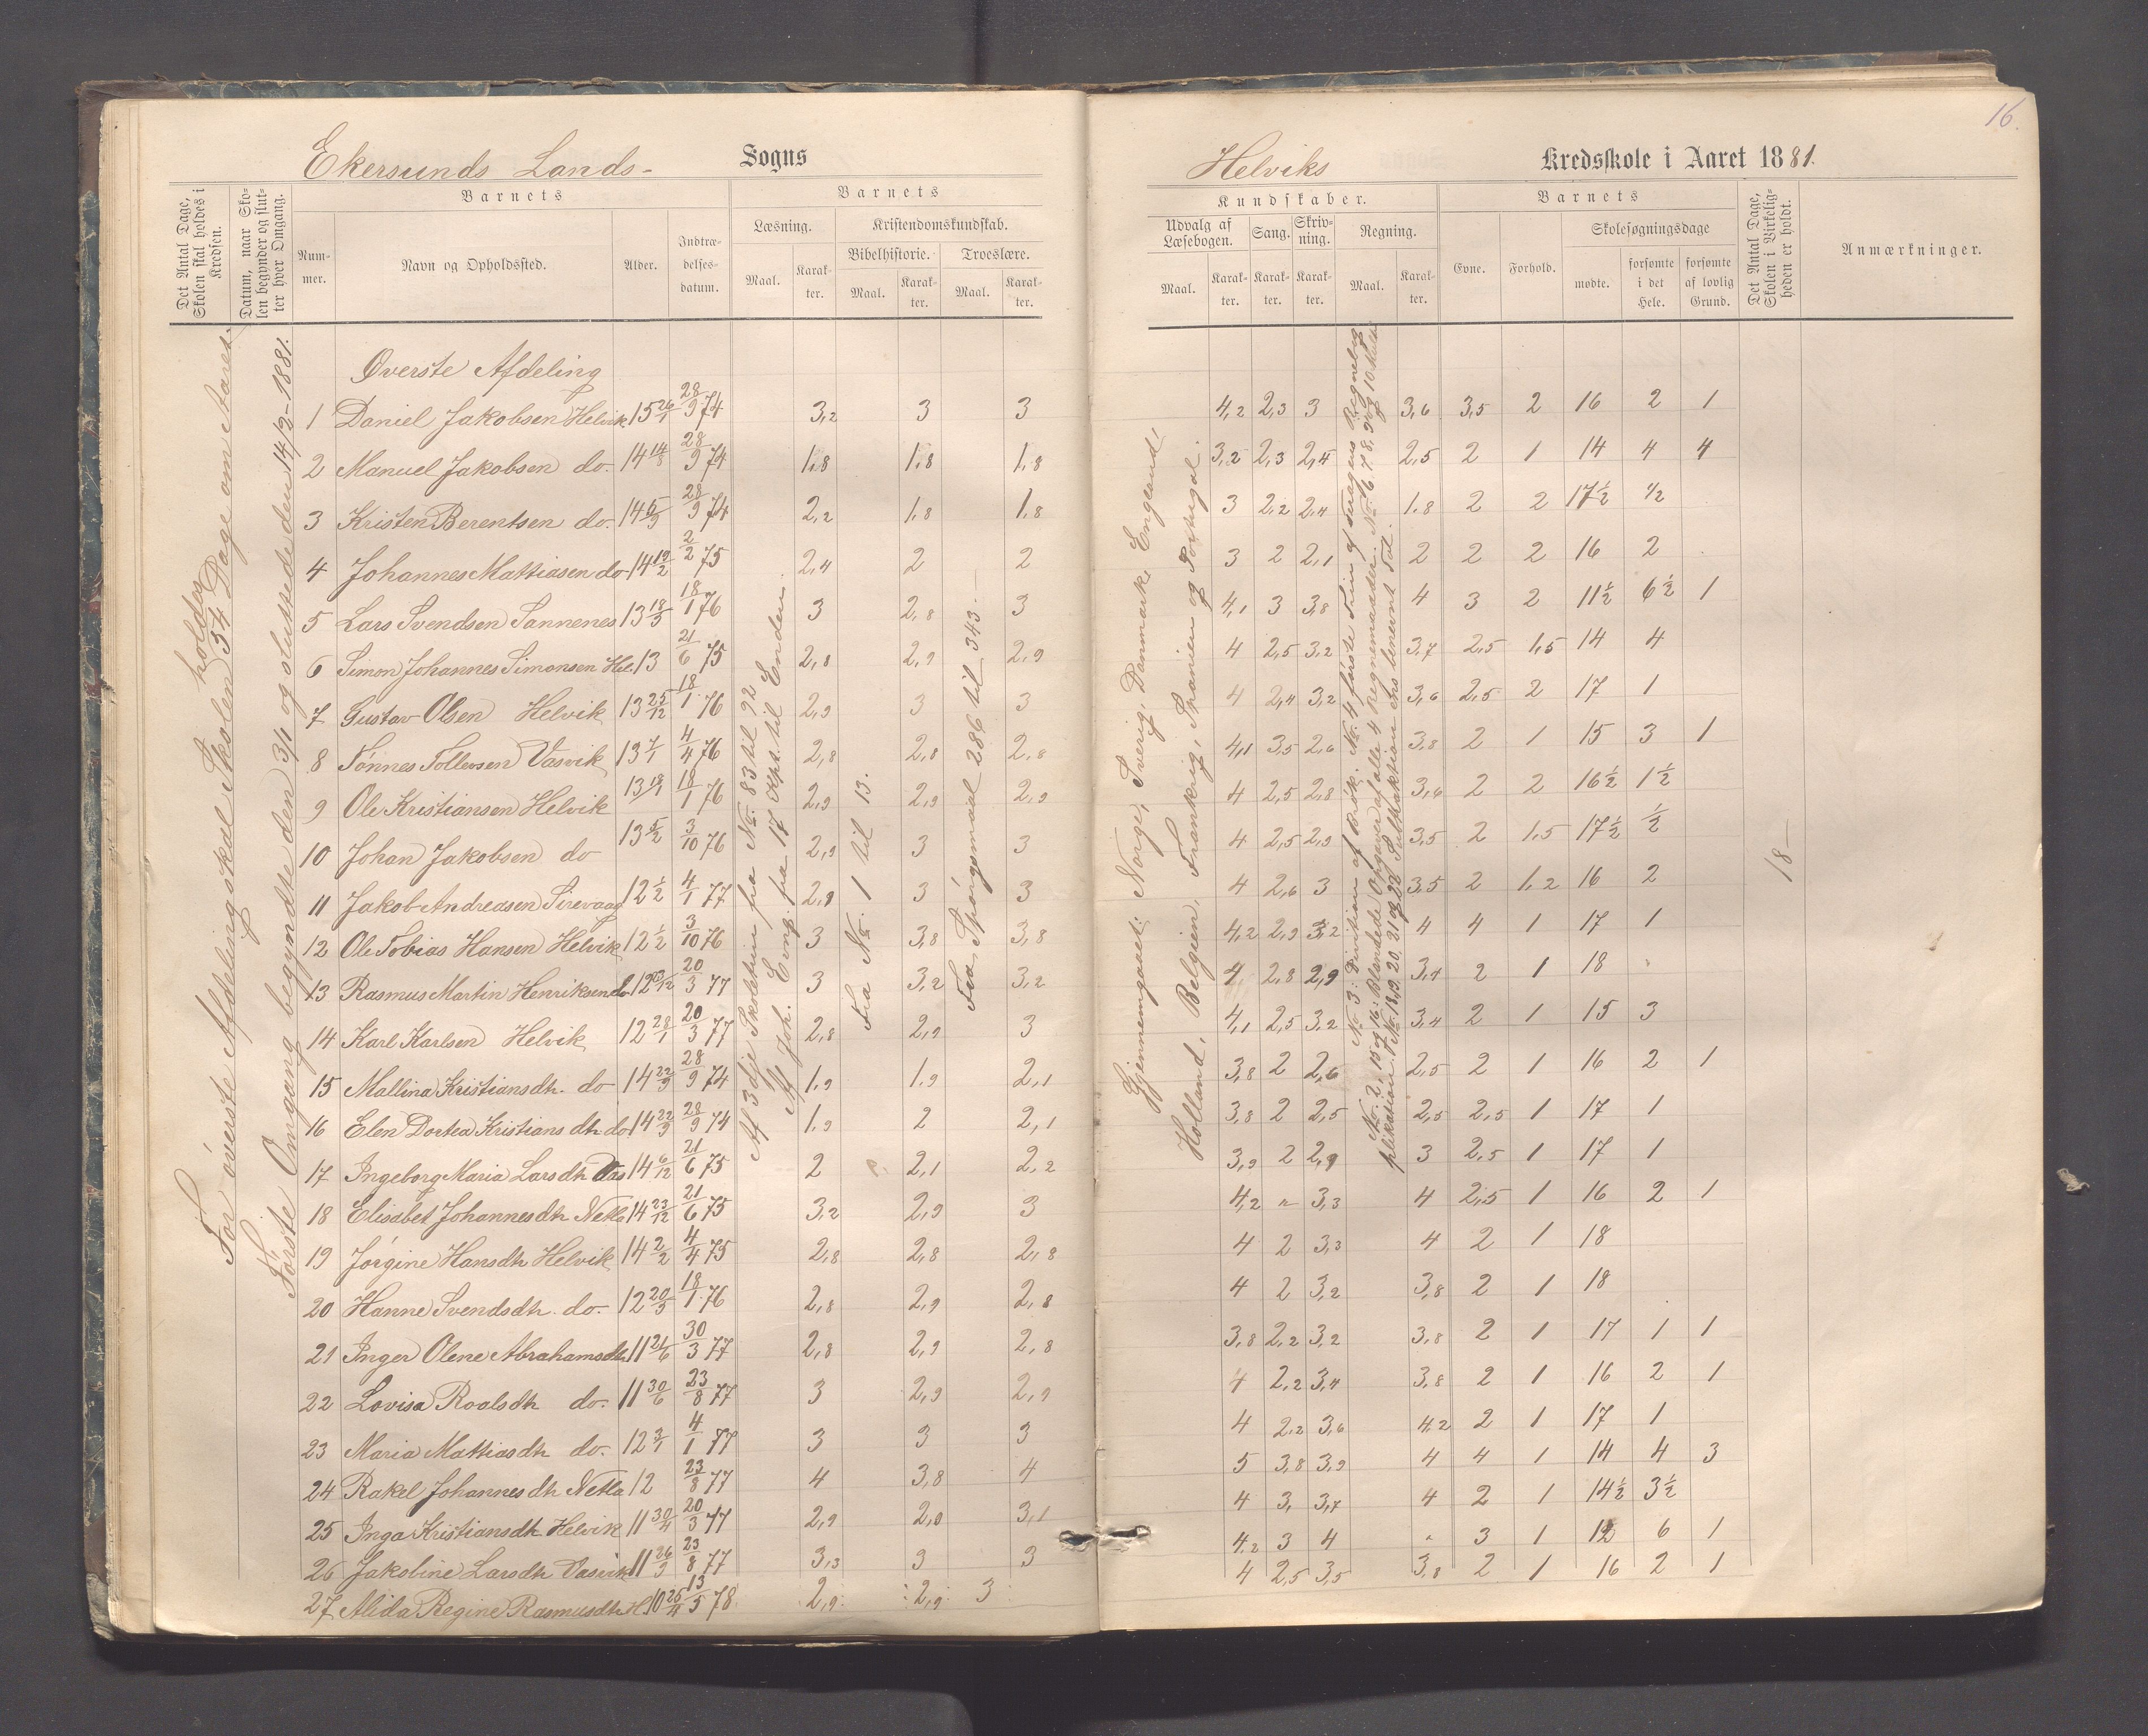 16.
Ekersunds Lands- Sogns
Helviks Kredsskole i Aaret 1881.
Det Antal Dage, Skolen skal holdes i Kredsen.
Datum, naar Skolen begynder og slutter hver Omgang.
Barnets
Nummer.
Navn og Opholdssted.
Alder.
Indtrædelsesdatum.
Barnets
Læsning.
Maal.
Karakter.
Kristendomskundskab.
Bibelhistorie.
Maal.
Karakter.
Troeslære.
Maal.
Karakter.
Kundskaber.
Udvalg af Læsebogen.
Maal.
Karakter.
Sang.
Karakter.
Skrivning.
Karakter.
Regning.
Maal.
Karakter.
Barnets
Evne.
Forhold.
Skolesøgningsdage
mødte.
forsømte i det Hele.
forsømte af lovlig Grund.
Det Antal Dage, Skolen i Virkeligheden er holdt.
Anmærkninger.
For øverste Afdeling skal Skolen holdes 54 Dage om Aaret.
Første Omgang begyndte den 3/1 og sluttede den 14/2-1881.
Øverste Afdeling
1 Daniel Jakobsen Helvik 15 26/1 28/9 74 3,2 3 3 4,2 2,3 3 3,6 3,5 2 16 2 1
2 Manuel Jakobsen do. 14 14/8 28/9 74 1,8 1,8 1,8 3,2 2,3 2,4 2,5 2 1 14 4 4
3 Kristen Berentsen do. 14 5/9 28/9 74 2,2 1,8 1,8 3 2,2 2,4 1,8 2 2 17½ ½
4 Johannes Mattiasen do 14 19/2 2/2 75 2,4 2 2 3 2 2,1 2 2 2 16 2
5 Lars Svendsen Sannenes 13 18/5 18/1 76 3 2,8 3 4,1 3 3,8 4 3 2 11½ 6½ 1
6 Simon Johannes Simonsen Hel. 13 21/6 75 2,8 2,9 2,9 4 2,5 3,2 3,7 2,5 1,5 14 4
7 Gustav Olsen Helvik 13 25/12 18/1 76 2,9 3 3 4 2,4 3,2 3,6 2,5 2 17 1
8 Tønnes Tollevsen Vasvik 13 7/1 4/4 76 2,8 2,8 2,8 4,1 3,5 2,6 3,8 2 1 15 3 1
9 Ole Kristiansen Helvik 13 18/1 18/1 76 2,9 2,9 2,9 4 2,5 2,8 3,6 2 2 16½ 1½
10 Johan Jakobsen do 13 5/2 3/10 76 2,9 3 3 4 2,5 2,9 3,5 2 1,5 17½ ½
11 Jakob Andreasen Sirevaag 12 ½ 4/1 77 2,8 3 3 4 2,6 3 3,5 2 1,2 16 2
12 Ole Tobias Hansen Helvik 12 ½ 3/10 76 3 3,8 3,8 4,2 2,9 3,2 4 4 1 17 1
13 Rasmus Martin Henriksen do 12 20/3 77 3 3,2 3,2 4 2,8 2,9 3,4 2 1 18
14 Karl Karlsen Helvik 12 28/1 20/3 77 2,8 2,9 3 4,1 2,5 3,2 3,4 2 1 15 3
15 Mallina Kristiansdh. do 14 22/9 28/9 74 1,9 1,9 2,1 3,8 2 2,6 2,5 2 1 16 2 1
16 Elen Dortea Kristiansdh do 14 22/9 28/9 74 1,9 2 2,1 3,8 2 2,5 2,5 2,5 1 17 1
17 Ingeborg Maria Larsdh Vas 14 6/12 21/6 75 2 2,1 2,2 3,9 2 2,9 3 2,5 1 17 1
18 Elisabet Johannesdh Netla 14 23/12 21/6 75 3,2 2,9 3 4,2 " 3,3 4 2,5 1 16 2 1
19 Jørgine Hansdh Helvik 14 2/2 4/4 75 2,8 2,8 2,8 4 2 3,3 4 2 1 18
20 Hanne Svendsdh. do. 12 20/5 18/1 76 2,8 2,9 2,8 4 2 3,2 3,8 2 1 18
21 Inger Olene Abrahamsdh 11 21/6 30/3 77 2,8 2,9 2,8 3,8 2,2 3,2 3,8 2 1 17 1 1
22 Lovisa Roalsdh do. 11 30/6 23/8 77 3 2,9 2,9 4 2,2 3,4 3,8 2 1 16 2 1
23 Maria Mattiasdh do. 12 3/1 4/1 77 3 3 3 4 2,2 3,6 4,2 2 1 17 1
24 Rakel Johannesdh Netla 12 23/8 77 4 3,8 4 5 3,8 3,9 4 4 1 14 4 3
25 Inga Kristiansdh Helvik 11 30/4 20/3 77 2,9 2,8 3,1 4 3, 3,7 4 2 1 14½ 3½
26 Jakobine Larsdh Vasvik 11 26/9 23/8 77 3,3 3 3 4,2 3 4 " 3 1 12 6 1
27 Alida Regine Rasmusdh H. 10 25/4 13/5 78 2,9 2,9 3 4 2,5 3,5 3,8 2 1 16 2 1
Af 3dje Skoletrin fra No. 83 til 92
Af Joh. Evng. fra 17 Kpt. til Enden.
Fra No. 1 til 13.
Fra Spørgsmaal 286 til 343.
Gjennemgaaet: Norge, Sverig, Danmark, England,
Holland, Belgien, Frankrig, Spanien og Portugal.
No. 3: Division af Brøk. No. 4 første Trin af Regnebog
No. 2, 15 og 16: Blandede Opgaver af alle 4 Regnemaader. No. 6, 7, 8, 9 og 10
No. 18, 19, 20, 21 og 22 Subtraktion
18—